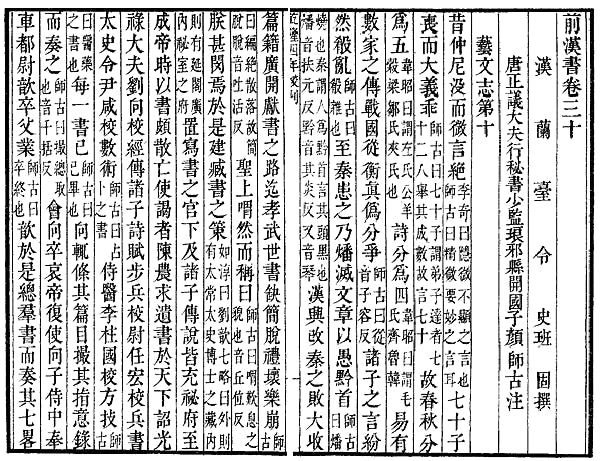 前漢書卷三十
漢蘭臺令史班固撰
唐正議大夫行秘書少監琅邪縣開國子顏師古注
藝文志第十
昔仲尼沒而微言絕李奇曰隱微不顯之言也師古曰精微要妙之言耳七十子
喪而大義乖師古曰七十子謂弟子達者七十二人舉其成數故言七十故春秋分
爲五韋昭曰謂左氏公羊穀梁鄒氏夾氏也詩分爲四韋昭曰謂毛氏齊魯韓易有
數家之傳戰國從衡眞僞分爭師古曰從音子容反諸子之言紛
然殽亂師古曰殽雜也至秦患之乃燔滅文章以愚黔首師古曰燔
燒也秦謂人爲黔首言其頭黑也燔音扶元反黔音其炎反又音琴漢興改秦之敗大收
乾隆四年校刊
篇籍廣開獻書之路迄孝武世書缺簡脫禮壞樂崩師古
曰編絶散落故簡脫脫音吐活反聖上喟然而稱曰師古曰喟歎息之貌也音丘位反
朕甚閔焉於是建臧書之策如淳曰劉歆七略曰外則有太常太史博士之藏內
則有延閣廣內祕室之府置寫書之官下及諸子傳說皆充祕府至
成帝時以書頗散亡使謁者陳農求遺書於天下詔光
祿大夫劉向校經傳諸子詩賦步兵校尉任宏校兵書
太史令尹咸校數術師古曰占卜之書侍醫李柱國校方技師古
曰醫藥之書也每一書已師古曰已畢也向輒條其篇目撮其指意錄
而奏之師古曰撮總取也音千括反會向卒哀帝復使向子侍中奉
車都尉歆卒父業師古曰卒終也歆於是總羣書而奏其七畧